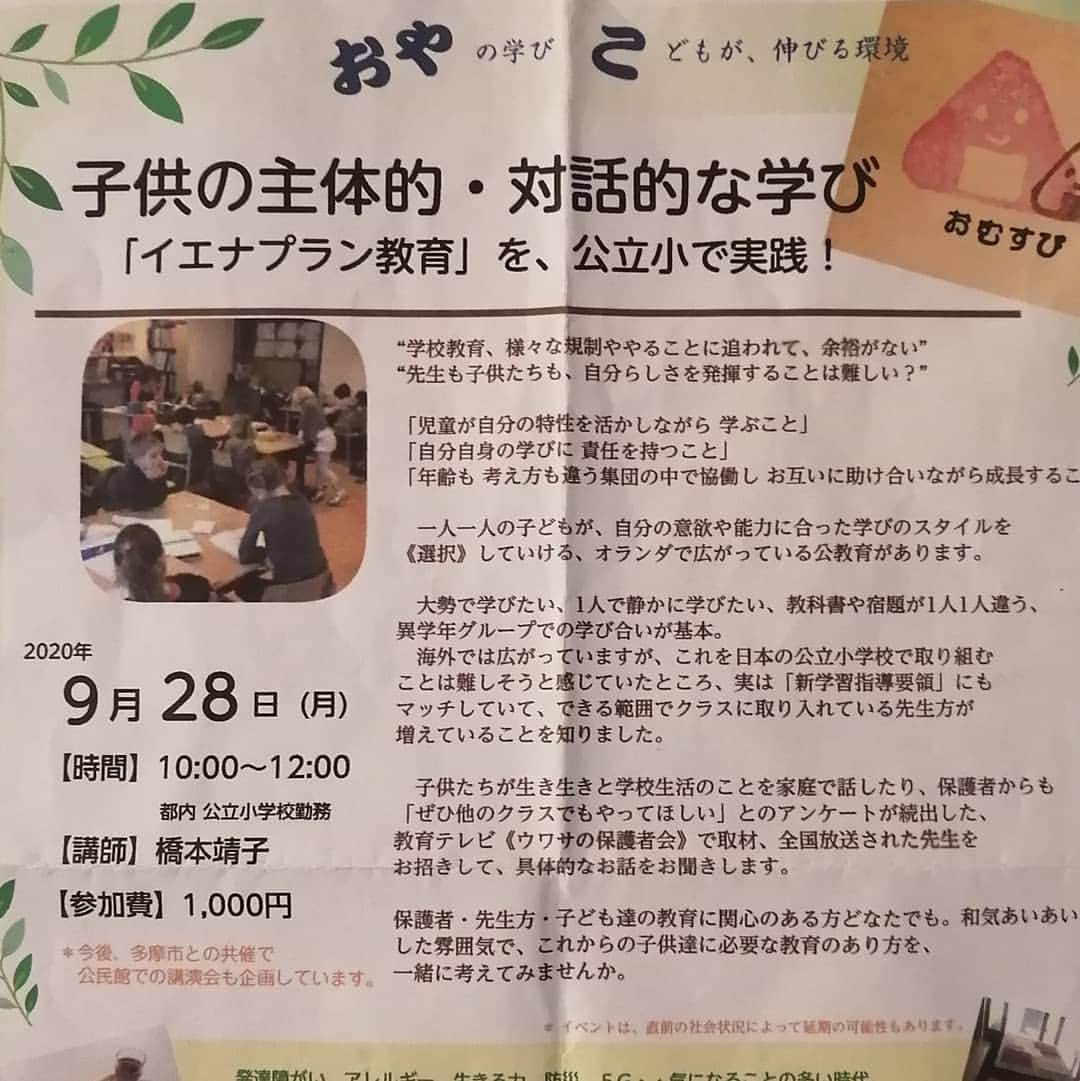 おやの学び こどもが、伸びる環境
おむすび
子供の主体的・対話的な学び
「イエナプラン教育」を、公立小で実践！
“学校教育、様々な規制ややることに追われて、余裕がない”
“先生も子供たちも、自分らしさを発揮することは難しい？”
「児童が自分の特性を活かしながら 学ぶこと」
「自分自身の学びに 責任を持つこと」
「年齢も 考え方も違う集団の中で協働し お互いに助け合いながら成長するこ
一人一人の子どもが、自分の意欲や能力に合った学びのスタイルを
《選択》していける、オランダで広がっている公教育があります。
大勢で学びたい、1人で静かに学びたい、教科書や宿題が1人1人違う、
異学年グループでの学び合いが基本。
海外では広がっていますが、これを日本の公立小学校で取り組む
ことは難しそうと感じていたところ、実は「新学習指導要領」にも
マッチしていて、できる範囲でクラスに取り入れている先生方が
増えていることを知りました。
子供たちが生き生きと学校生活のことを家庭で話したり、保護者からも
「ぜひ他のクラスでもやってほしい」とのアンケートが続出した、
教育テレビ《ウワサの保護者会》で取材、全国放送された先生を
お招きして、具体的なお話をお聞きします。
保護者・先生方・子ども達の教育に関心のある方どなたでも。和気あいあい
した雰囲気で、これからの子供達に必要な教育のあり方を、
一緒に考えてみませんか。
2020年
9月28日（月）
【時間】10:00〜12:00
都内 公立小学校勤務
【講師】橋本靖子
【参加費】1,000円
＊今後、多摩市との共催で
公民館での講演会も企画しています。
＊イベントは、直前の社会状況によって延期の可能性もあります。
発達障がい、アレルギー、生きる力、防災、5G・・気になることの多い時代